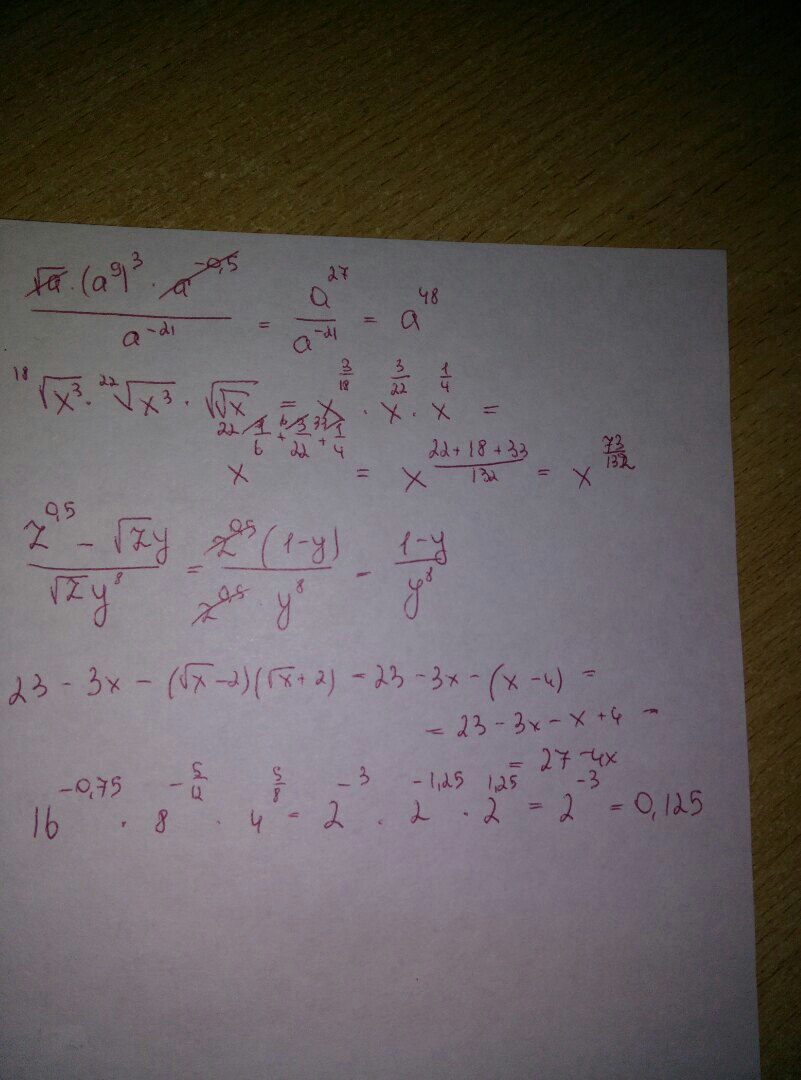 √a · (a⁹)³ · a^(-0,5) / a^(-21) = a^27 / a^(-21) = a^48
¹⁸√x³ · ²²√x³ · √√x = x^(3/18) · x^(3/22) · x^(1/4) =
x^(1/6 + 3/22 + 1/4) = x^((22+18+33)/132) = x^(73/132)
(z^0,5 - √z y) / (√z y⁸) = z^0,5 (1-y) / (z^0,5 y⁸) = (1-y) / y⁸
23 - 3x - (√x - 2)(√x + 2) = 23 - 3x - (x - 4) =
= 23 - 3x - x + 4 =
= 27 - 4x
16^(-0,75) · 8^(-5/12) · 4^(5/8) = 2^(-3) · 2^(-1,25) · 2^(1,25) = 2^(-3) = 0,125